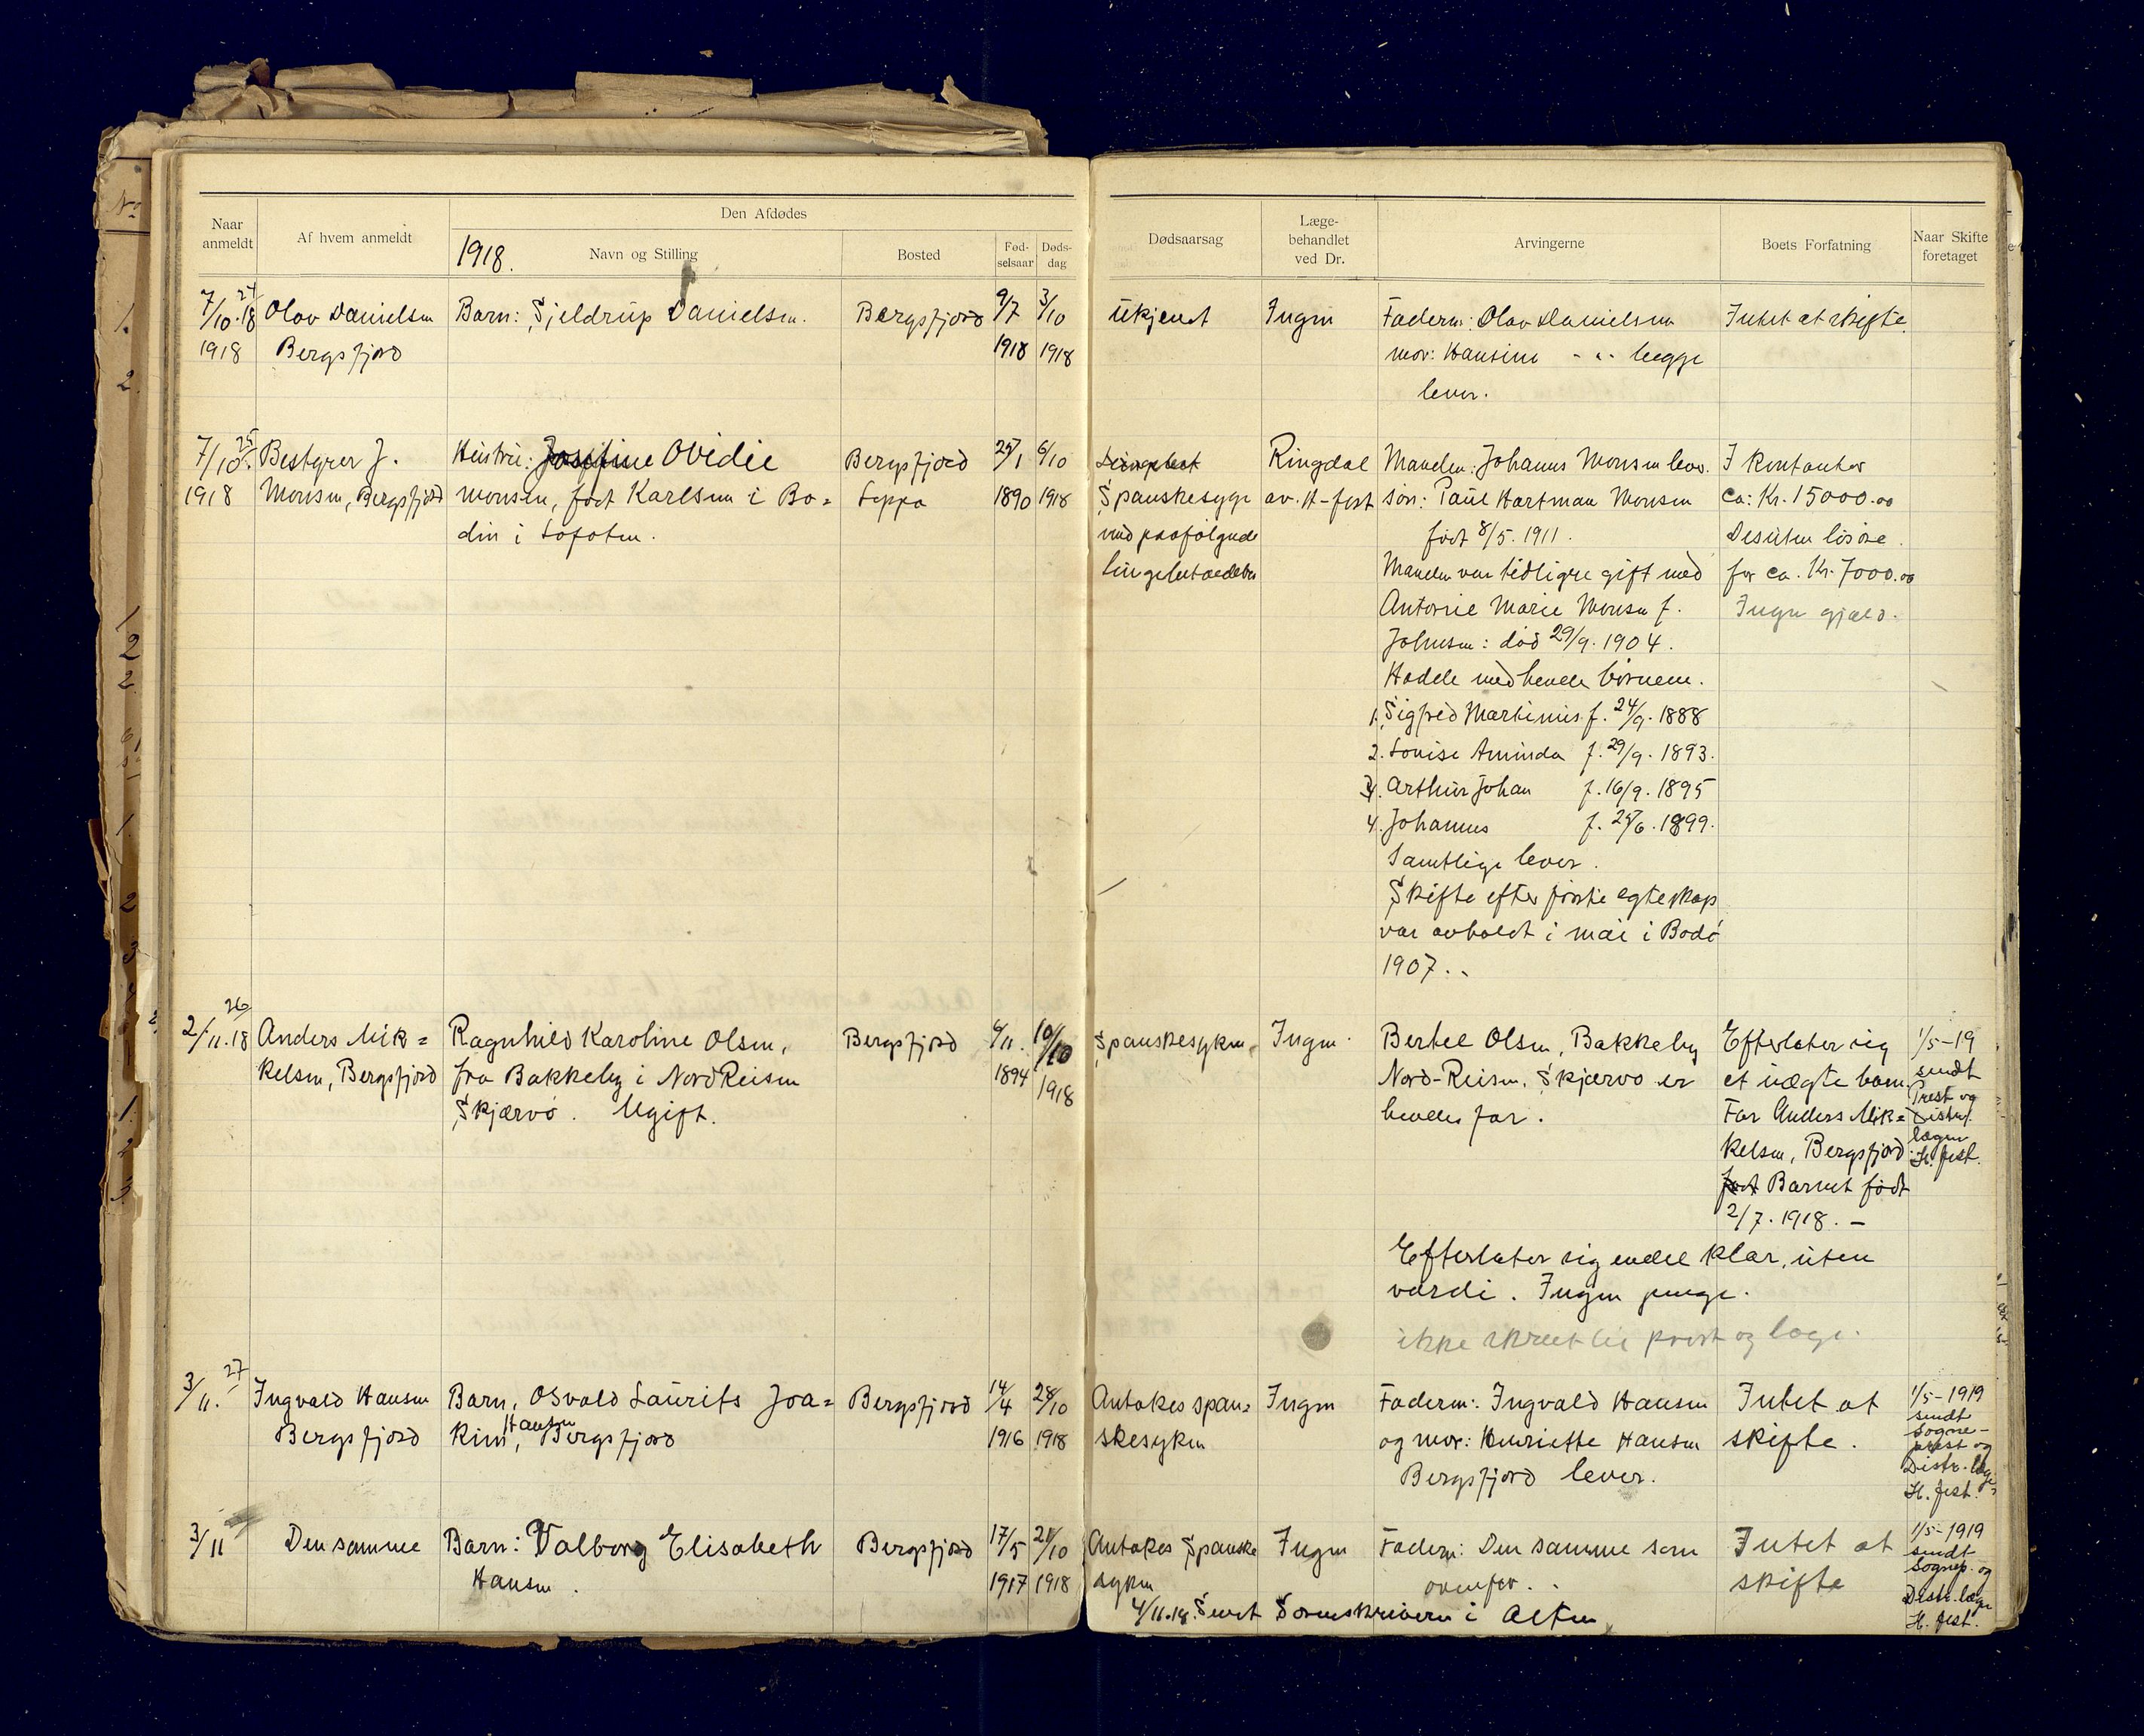 Naar anmeldt
Af hvem anmeldt
Den Afdødes
1918.
Navn og Stilling
Bosted
Fød-selsaar
Døds-dag
Dødsaarsag
Læge-behandlet ved Dr.
Arvingerne
Boets Forfatning
Naar Skifte foretaget
24
7/10.18 Olav Danielsen Barn: Sjeldrup Danielsen. Bergsfjord 9/7 3/10 Ukjendt Ingen Faderen: Olav Danielsen Intet at skifte.
1918 Bergsfjord 1918 1918 mor: Hansine - " - begge
lever.
25
7/10. Bestyrer J. Hustru: Josefine Ovidie Bergsfjord 25/1 6/10 Ringdal Manden: Johannes Monsen lever. I kontanter
1918 Monsen, Bergsfjord Monsen, født Karlsen i Bo= Loppa 1890 1918 Spanskesyge av. H-fest søn: Paul Hartman Monsen ca: Kr. 15000.00
din i Lofoten. med paafølgende født 8/5. 1911. Desuten løsøre
lungebetændelse Manden var tidligere gift med for ca. Kr. 7000.00
Antonie Marie Monsen f. Ingen gjæld.
Johnsen: død 29/9. 1904.
Hadde med hende børnene.
1. Sigfred Martinius f. 24/9. 1888
2. Lovise Aminda f. 29/9. 1893.
3. Arthur Johan f. 16/9. 1895
4. Johannes f. 25/6. 1899.
Samtlige lever.
Skifte efter første egteskap
var avholdt i mai i Bodø
1907.
26
2/11.18 Anders Mik= Ragnhild Karoline Olsen, Bergsfjord 6/11. 10/10 Spanskesyken, Ingen. Bertel Olsen, Bakkeby Efterlater sig 1/5-19
kelsen, Bergsfjord fra Bakkeby i NordReisen 1894 1918 Nord-Reisen, Skjærvø er et uægte barn. sendt
Skjærvø. Ugift. hendes far. Far Anders Mik= Prest og Distr.
kelsen, Bergsfjord. lægen H. fest.
født Barnet født
2/7. 1918. -
Efterlater sig endel klær, uten
værdi. Ingen penge.
ikke skreet til prest og læge.
27
3/11. Ingvald Hansen Barn, Osvald Laurits Joa= Bergsfjord 14/4 28/10 Antakes span= Ingen Faderen: Ingvald Hansen Intet at 1/5-1919
Bergsfjord kim, Hansen Bergsfjord 1916 1918 skesyken og mor: Henriette Hansen skifte. sendt Sogne-
Bergsfjord lever. prest og
Distr. læge
H. fest.
3/11 Den samme Barn: Valborg Elisabeth Bergsfjord 17/5 21/10 Antakes Spanske Ingen Faderen: Den samme som Intet at 1/5-1919
Hansen. 1917 1918 syken ovenfor. skifte sendt
Sognep. og
Distr. læge
H. fest.
4/11.18. Sendt Sorenskriveren i Alten